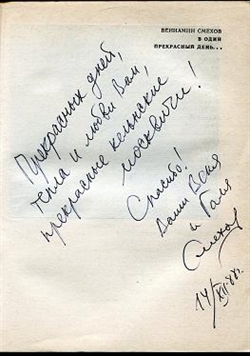 ВЕНИАМИН СМЕХОВ
В ОДИН
ПРЕКРАСНЫЙ ДЕНЬ...
Прекрасных дней,
тепла и любви Вам,
прекрасные кельнские
москвичи!
Спасибо!
Ваши Веня
и Галя
Смехов
14/XII-88г.